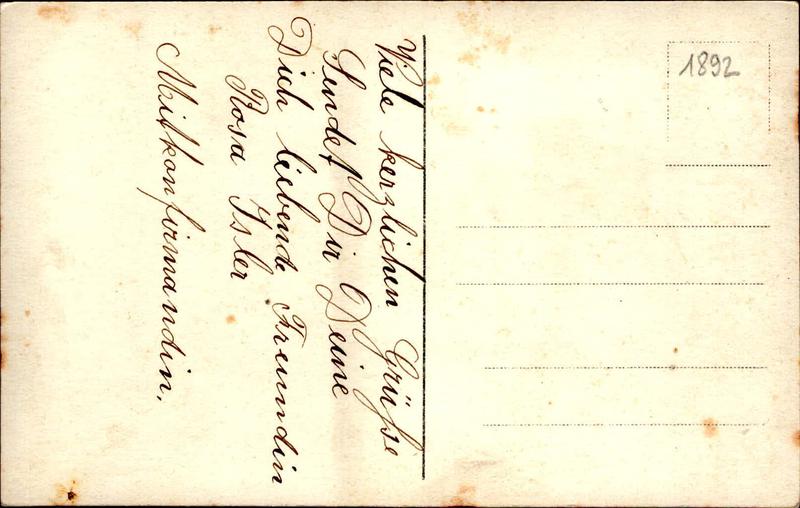 Viele herzlichen Grüße
Sendet Dir Deine
Dich liebende Freundin
Rosa Isler
Mitkonfirmandin.
1892